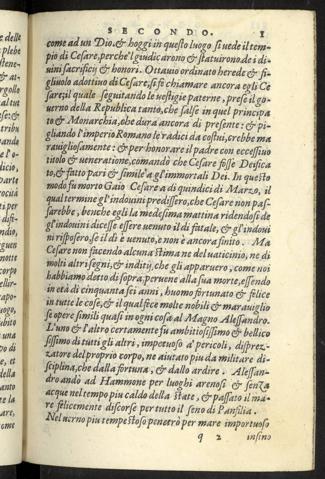 SECONDO. 1
come ad un Dio, & hoggi in questo luogo si vede il tem-
pio di Cesare, perche'l giudicarono & statuirono dei di-
uini sacrificij & honori. Ottauio ordinato herede & fi-
gliuolo adottiuo di Cesare, si fe chiamare ancora egli Ce
sare; il quale seguitando le uestigie paterne, prese il go-
uerno della Republica tanto, che salse in quel principa
to & Monarchia, che dura ancora di presente: & pi-
gliando l'imperio Romano le radici da costui, crebbe ma
rauigliosamente: & per honorare il padre con eccessiuo
titolo & ueneratione, comandò che Cesare fosse Deifica
to, & fatto pari & simile a gl'immortali Dei. In questo
modo fu morto Gaio Cesare a di quindici di Marzo, il
qual termine gl'indouini predissero, che Cesare non pas-
sarebbe, benche egli la medesima mattina ridendosi de
gl'indouini dicesse essere uenuto il di fatale, & gl'indoui
ni risposer, se il dì è uenuto, e non è ancora finito. Ma
Cesare non facendo alcuna stima ne del uaticinio, ne di
molti altri segni, & inditij, che gli apparuero, come noi
habbiamo detto di sopra, peruenne alla sua morte, essendo
in età di cinquanta sei anni, huomo fortunato & felice
in tutte le cose, & il qual fece molte nobili & marauiglio
se opere simili quasi in ogni cosa al Magno Alessandro.
L'uno & l'altro certamente fu ambitiosissimo & bellico
sissimo di tutti gli altri, impetuoso a' pericoli, disprez-
zatore del proprio corpo, ne aiutato piu da militare di-
sciplina, che dalla fortuna, & dallo ardire. Alessan-
dro andò ad Hammone per luoghi arenosi & senza
acque nel tempo piu caldo della state, & passato il ma-
re felicemente discorse per tutto il seno di Panfilia.
Nel uerno piu tempestoso penetrò per mare importuoso
q 2 insino